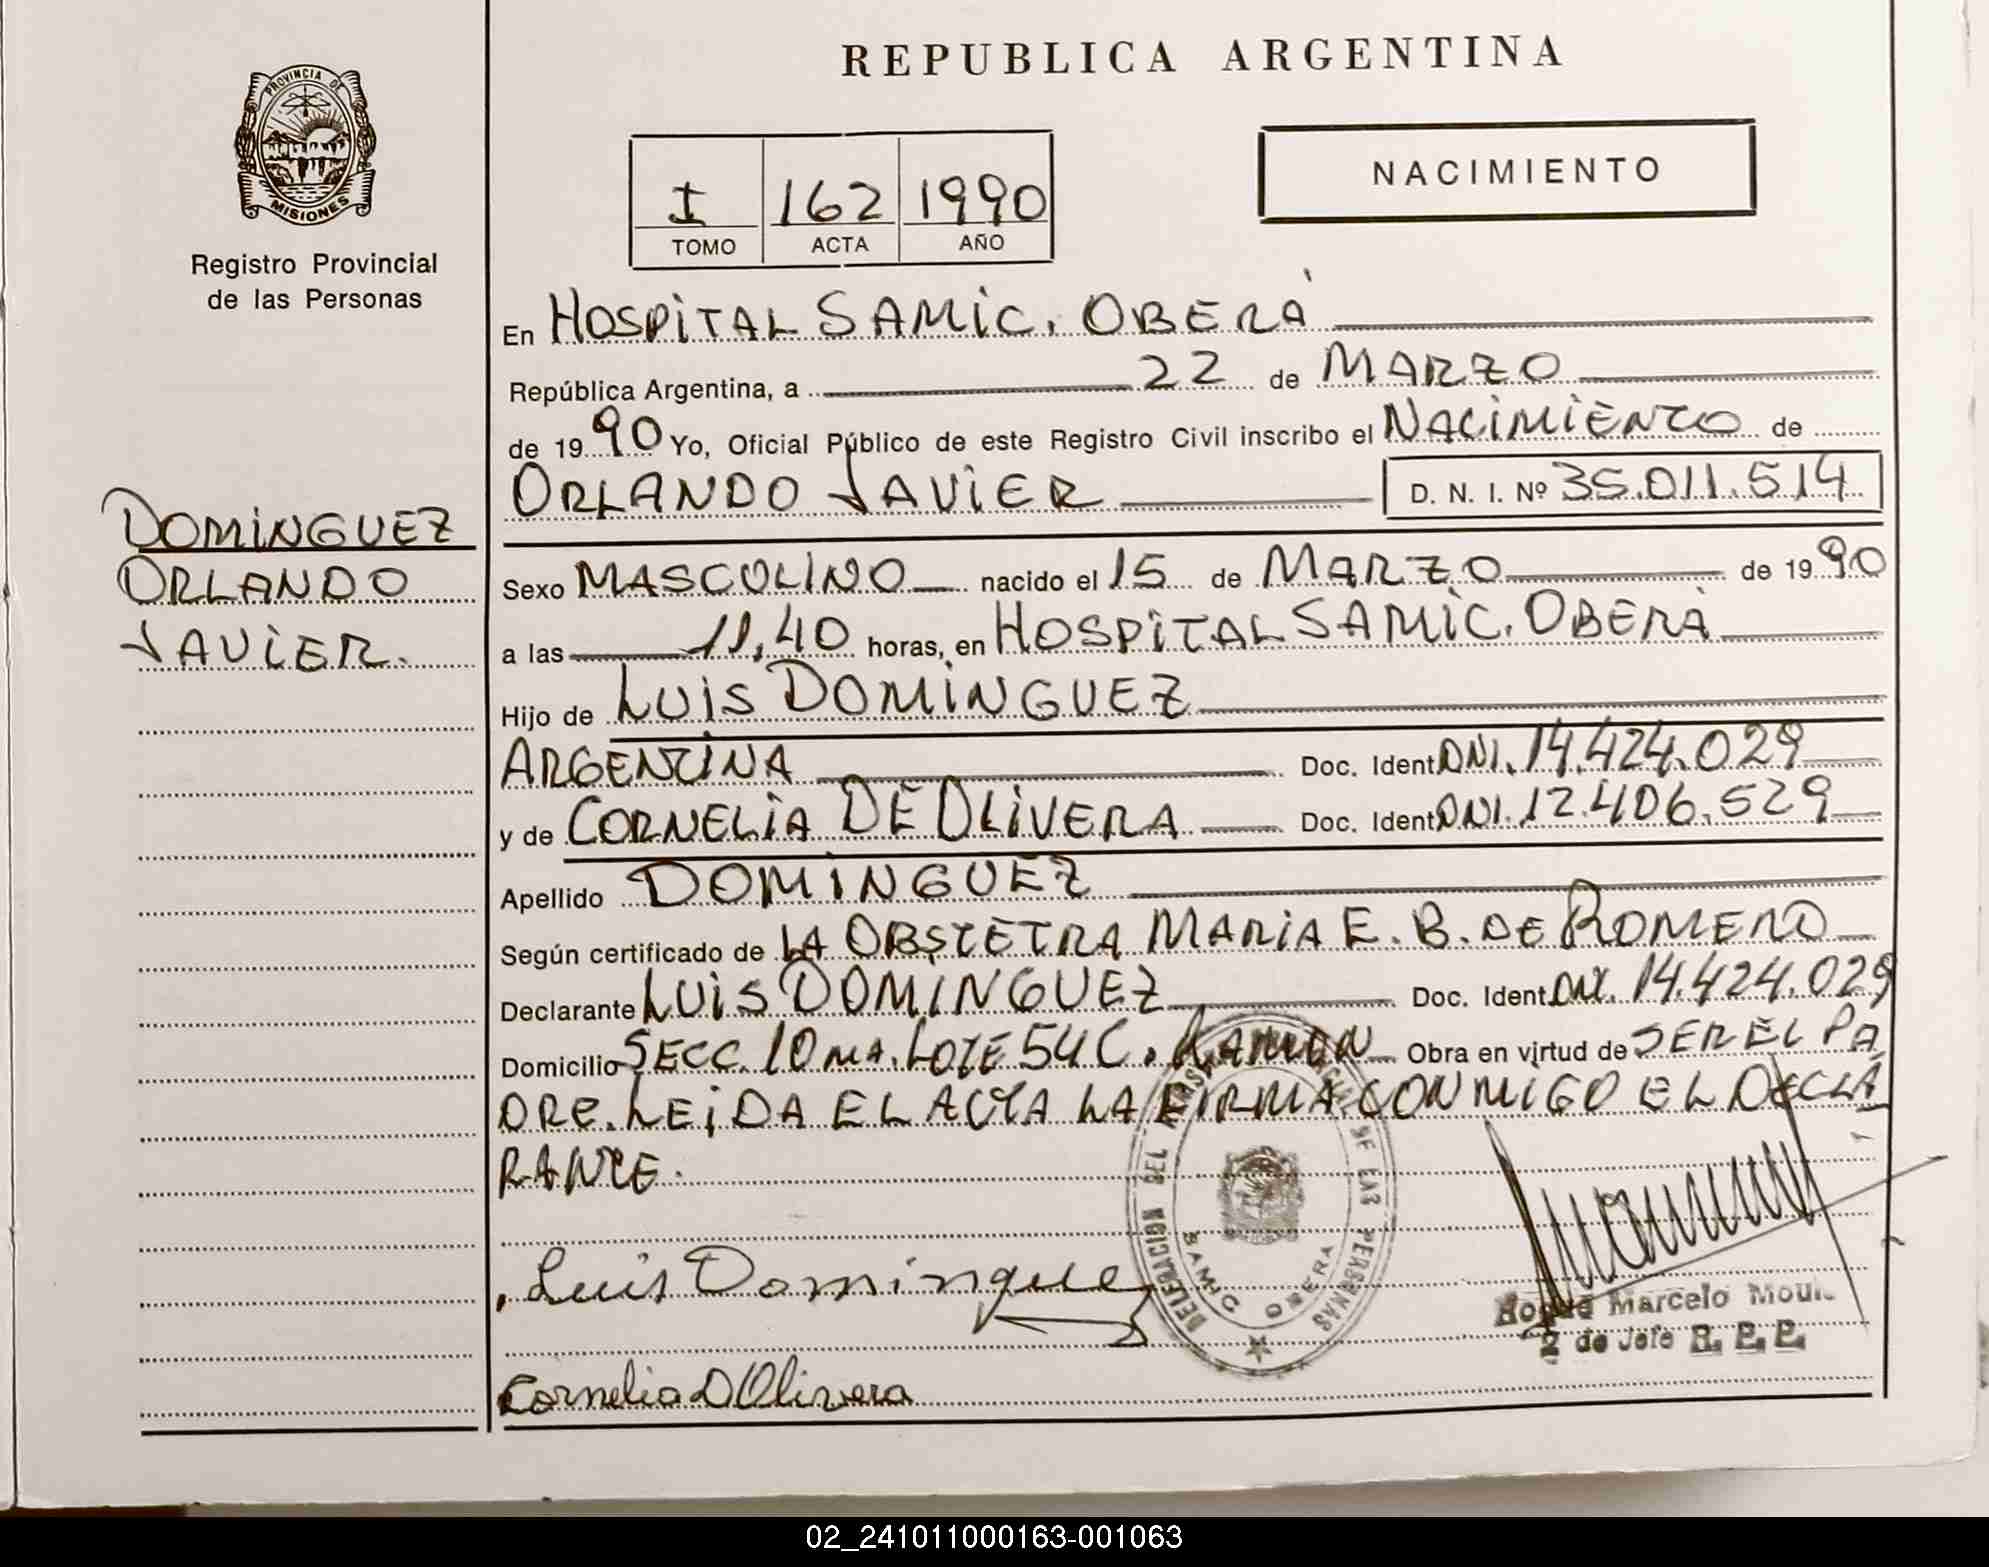 REPUBLICA ARGENTINA
PROVINCIA DE
MISIONES
Registro Provincial
de las Personas
NACIMIENTO
I 162 1990
TOMO ACTA AÑO
En HOSPITAL SAMIC. OBERÁ
República Argentina, a 22 de MARZO
de 1990 Yo, Oficial Público de este Registro Civil inscribo el NACIMIENTO de
ORLANDO JAVIER D. N. I. Nº 35.011.514
DOMINGUEZ
ORLANDO
JAVIER.
Sexo MASCOLINO nacido el 15 de MARZO de 1990
a las 11,40 horas, en HOSPITAL SAMIC. OBERÁ
Hijo de LUIS DOMINGUEZ
ARGENTINA Doc. Ident DNI. 14.424.029
y de CORNELIA DE OLIVERA Doc. Ident DNI. 12.406.529
Apellido DOMINGUEZ
Según certificado de LA OBSTETRA MARIA E. B. DE ROMERO
Declarante LUIS DOMINGUEZ Doc. Ident. DNI. 14.424.029
Domicilio SECC. 10 MA. LOTE 54 C. RAMON Obra en virtud de SER EL PA
DRE. LEIDA EL ACTA LA FIRMA CONMIGO EL DECLA
RANTE.
DELEGACION DEL DE LAS PERSONAS
SAMIC OBERA
Luis Dominguez
Roque Marcelo
2 de Jefe R. P. P.
Cornelia D Olivera
02_241011000163-001063